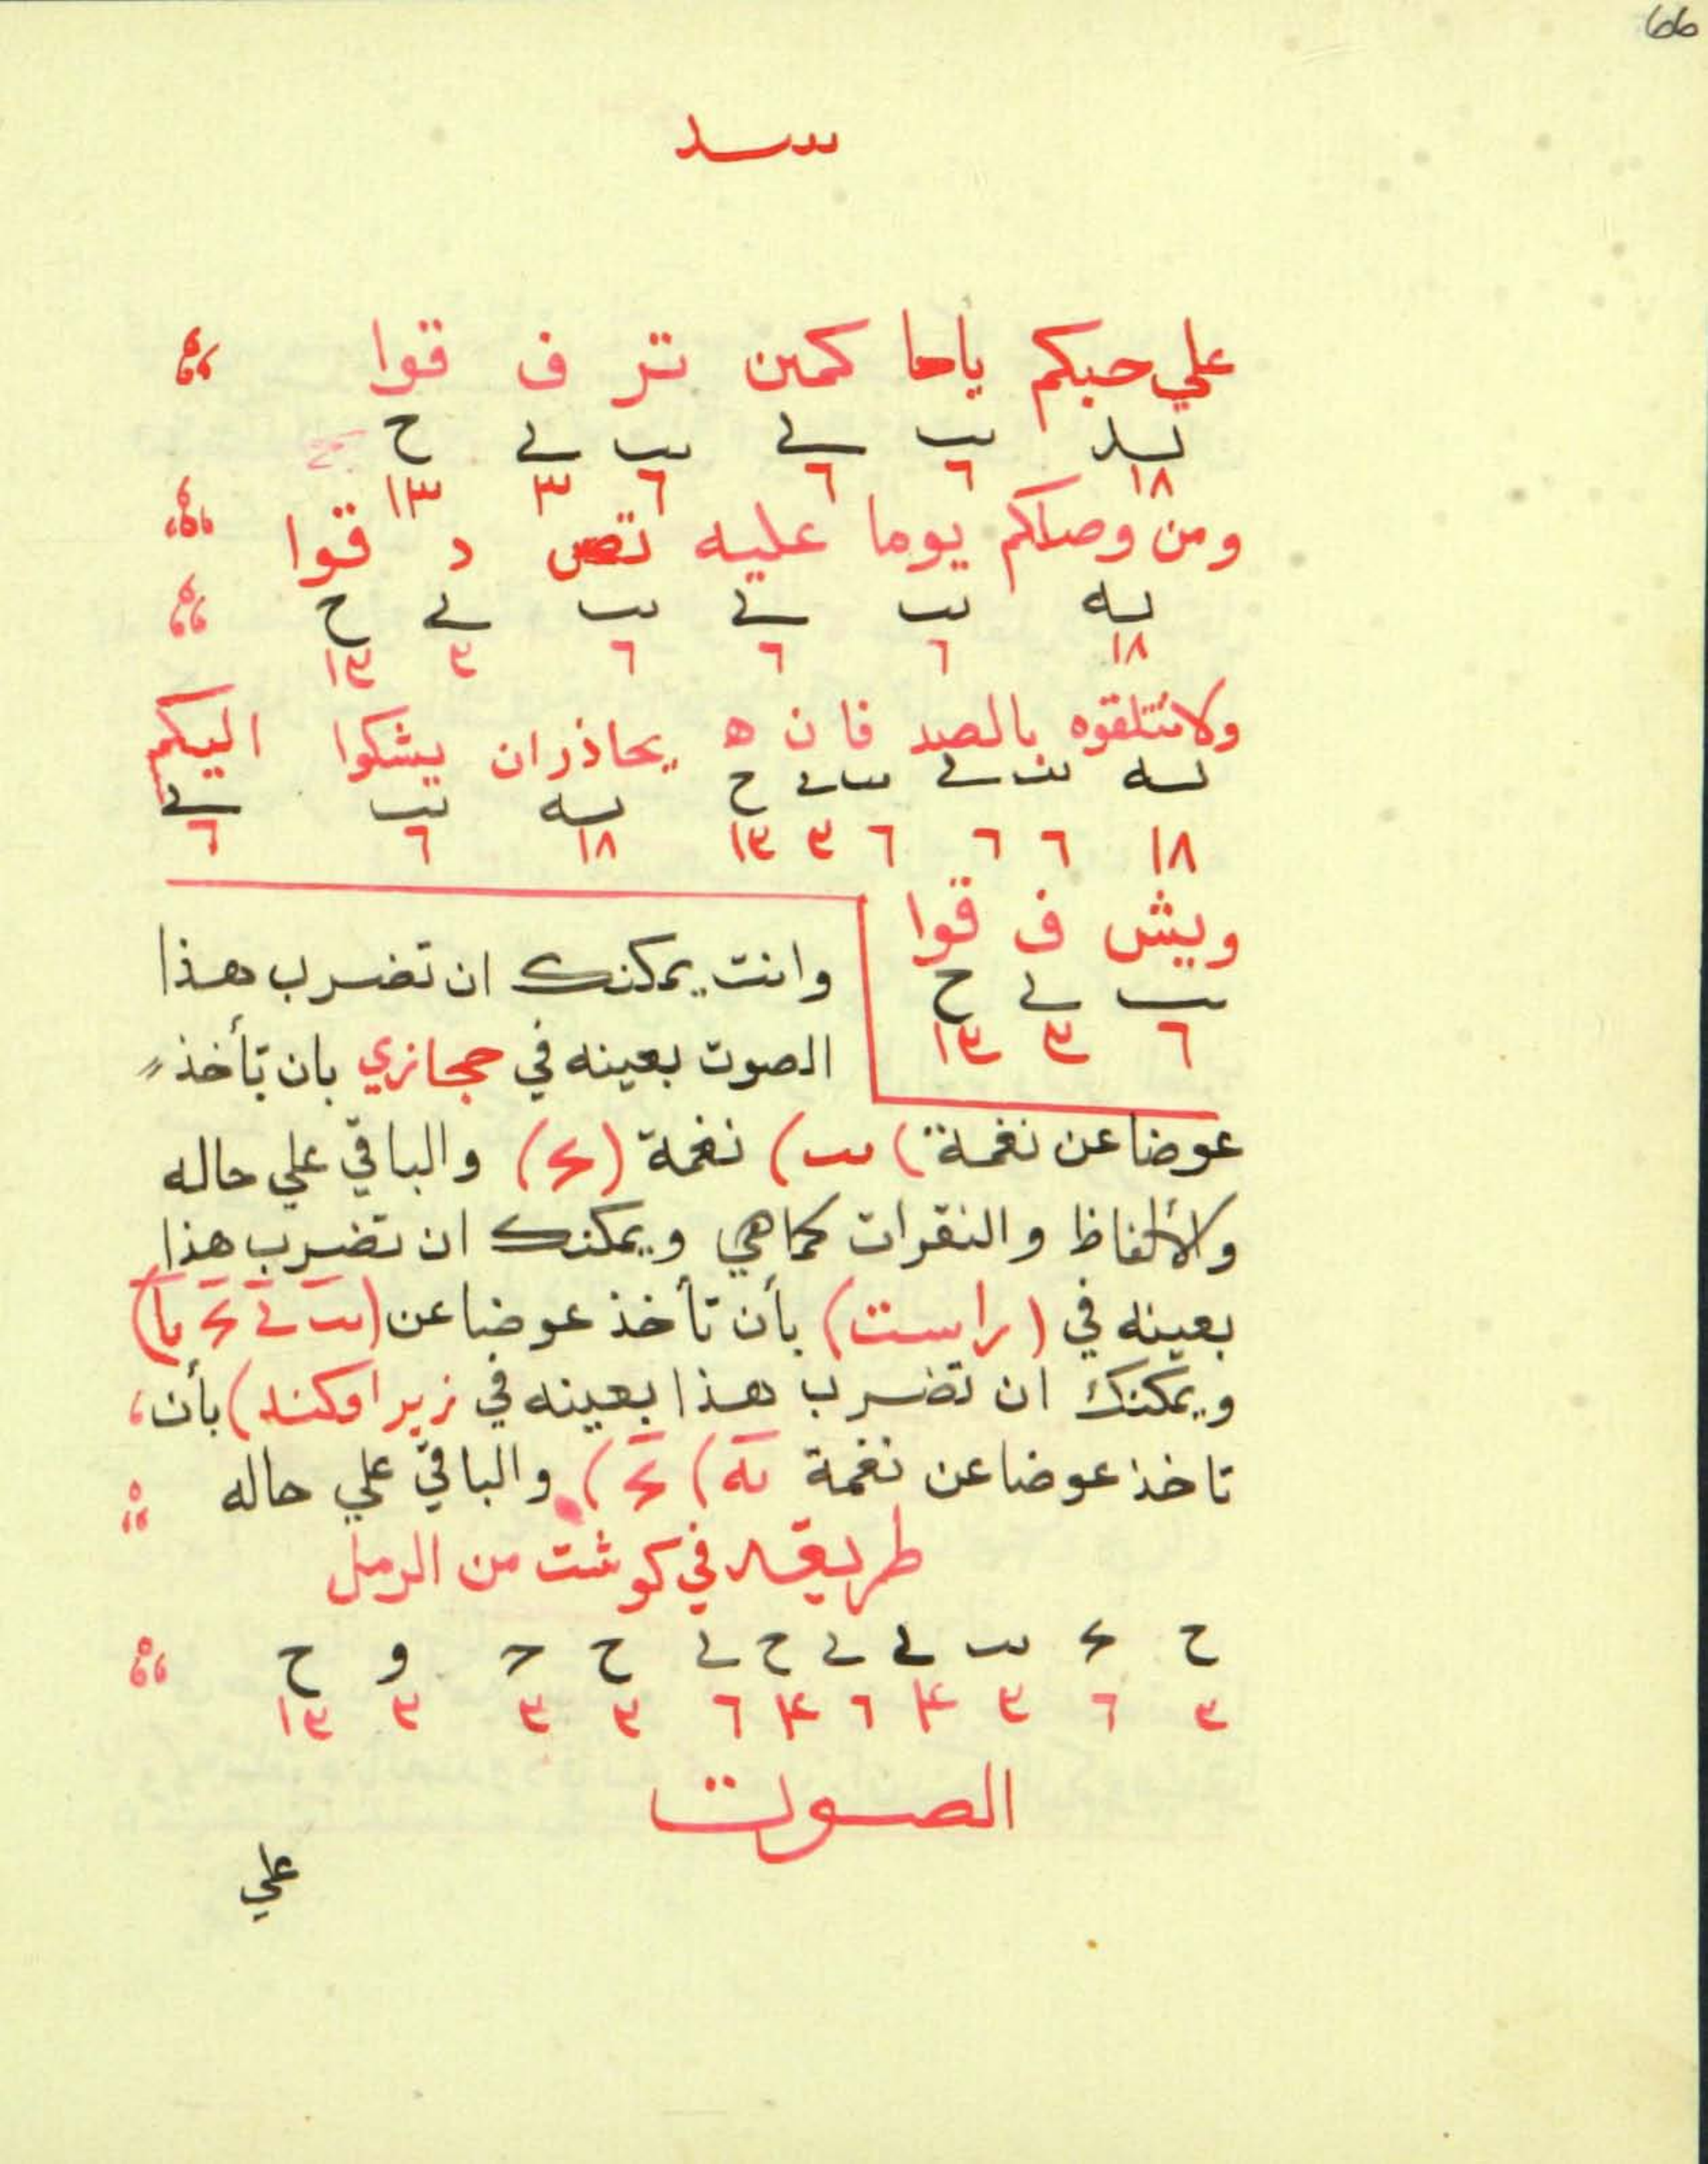 66
علي حبكم ياحا كمين تر ف قوا
يه يب ي يب ي ح
١٨ ٦ ٦ ٦ ٣ ١٣
ومن وصلكم يوما عليه تص د قوا
يه يب ي يب ي ح
١٨ ٦ ٦ ٦ ٣ ١٣
ولا تتلقوه بالصد فا ن ه يحاذر ان يشكوا اليكم
يه يب ي يب ي ح يه يب ي
١٨ ٦ ٦ ٦ ٣ ١٣ ١٨ ٦ ٦
ويش ف قوا
يب ي ح
٦ ٣ ١٣
وانت يمكنك ان تضرب هذا
الصوت بعينه في حجازي بان تأخذ
عوضا عن نغمة (يب) نغمة (ج) والباقي علي حاله
ولالألفاظ والنقرات كماهي ويمكنك ان تضرب هذا
بعينه في (راست) بأن تأخذ عوضا عن (يب ي ج يا)
ويمكنك ان تضرب هذا بعينه في زيرا وكند) بأن
تاخذ عوضا عن نغمة يه) ج) والباقي علي حاله
طريقه في كوشت من الرمل
ح ي يب ي ي ح ي ح ج و ح
٣ ٦ ٣ ٤ ٦ ٤ ٦ ٣ ٣ ٣ ١٣
الصوت
علي